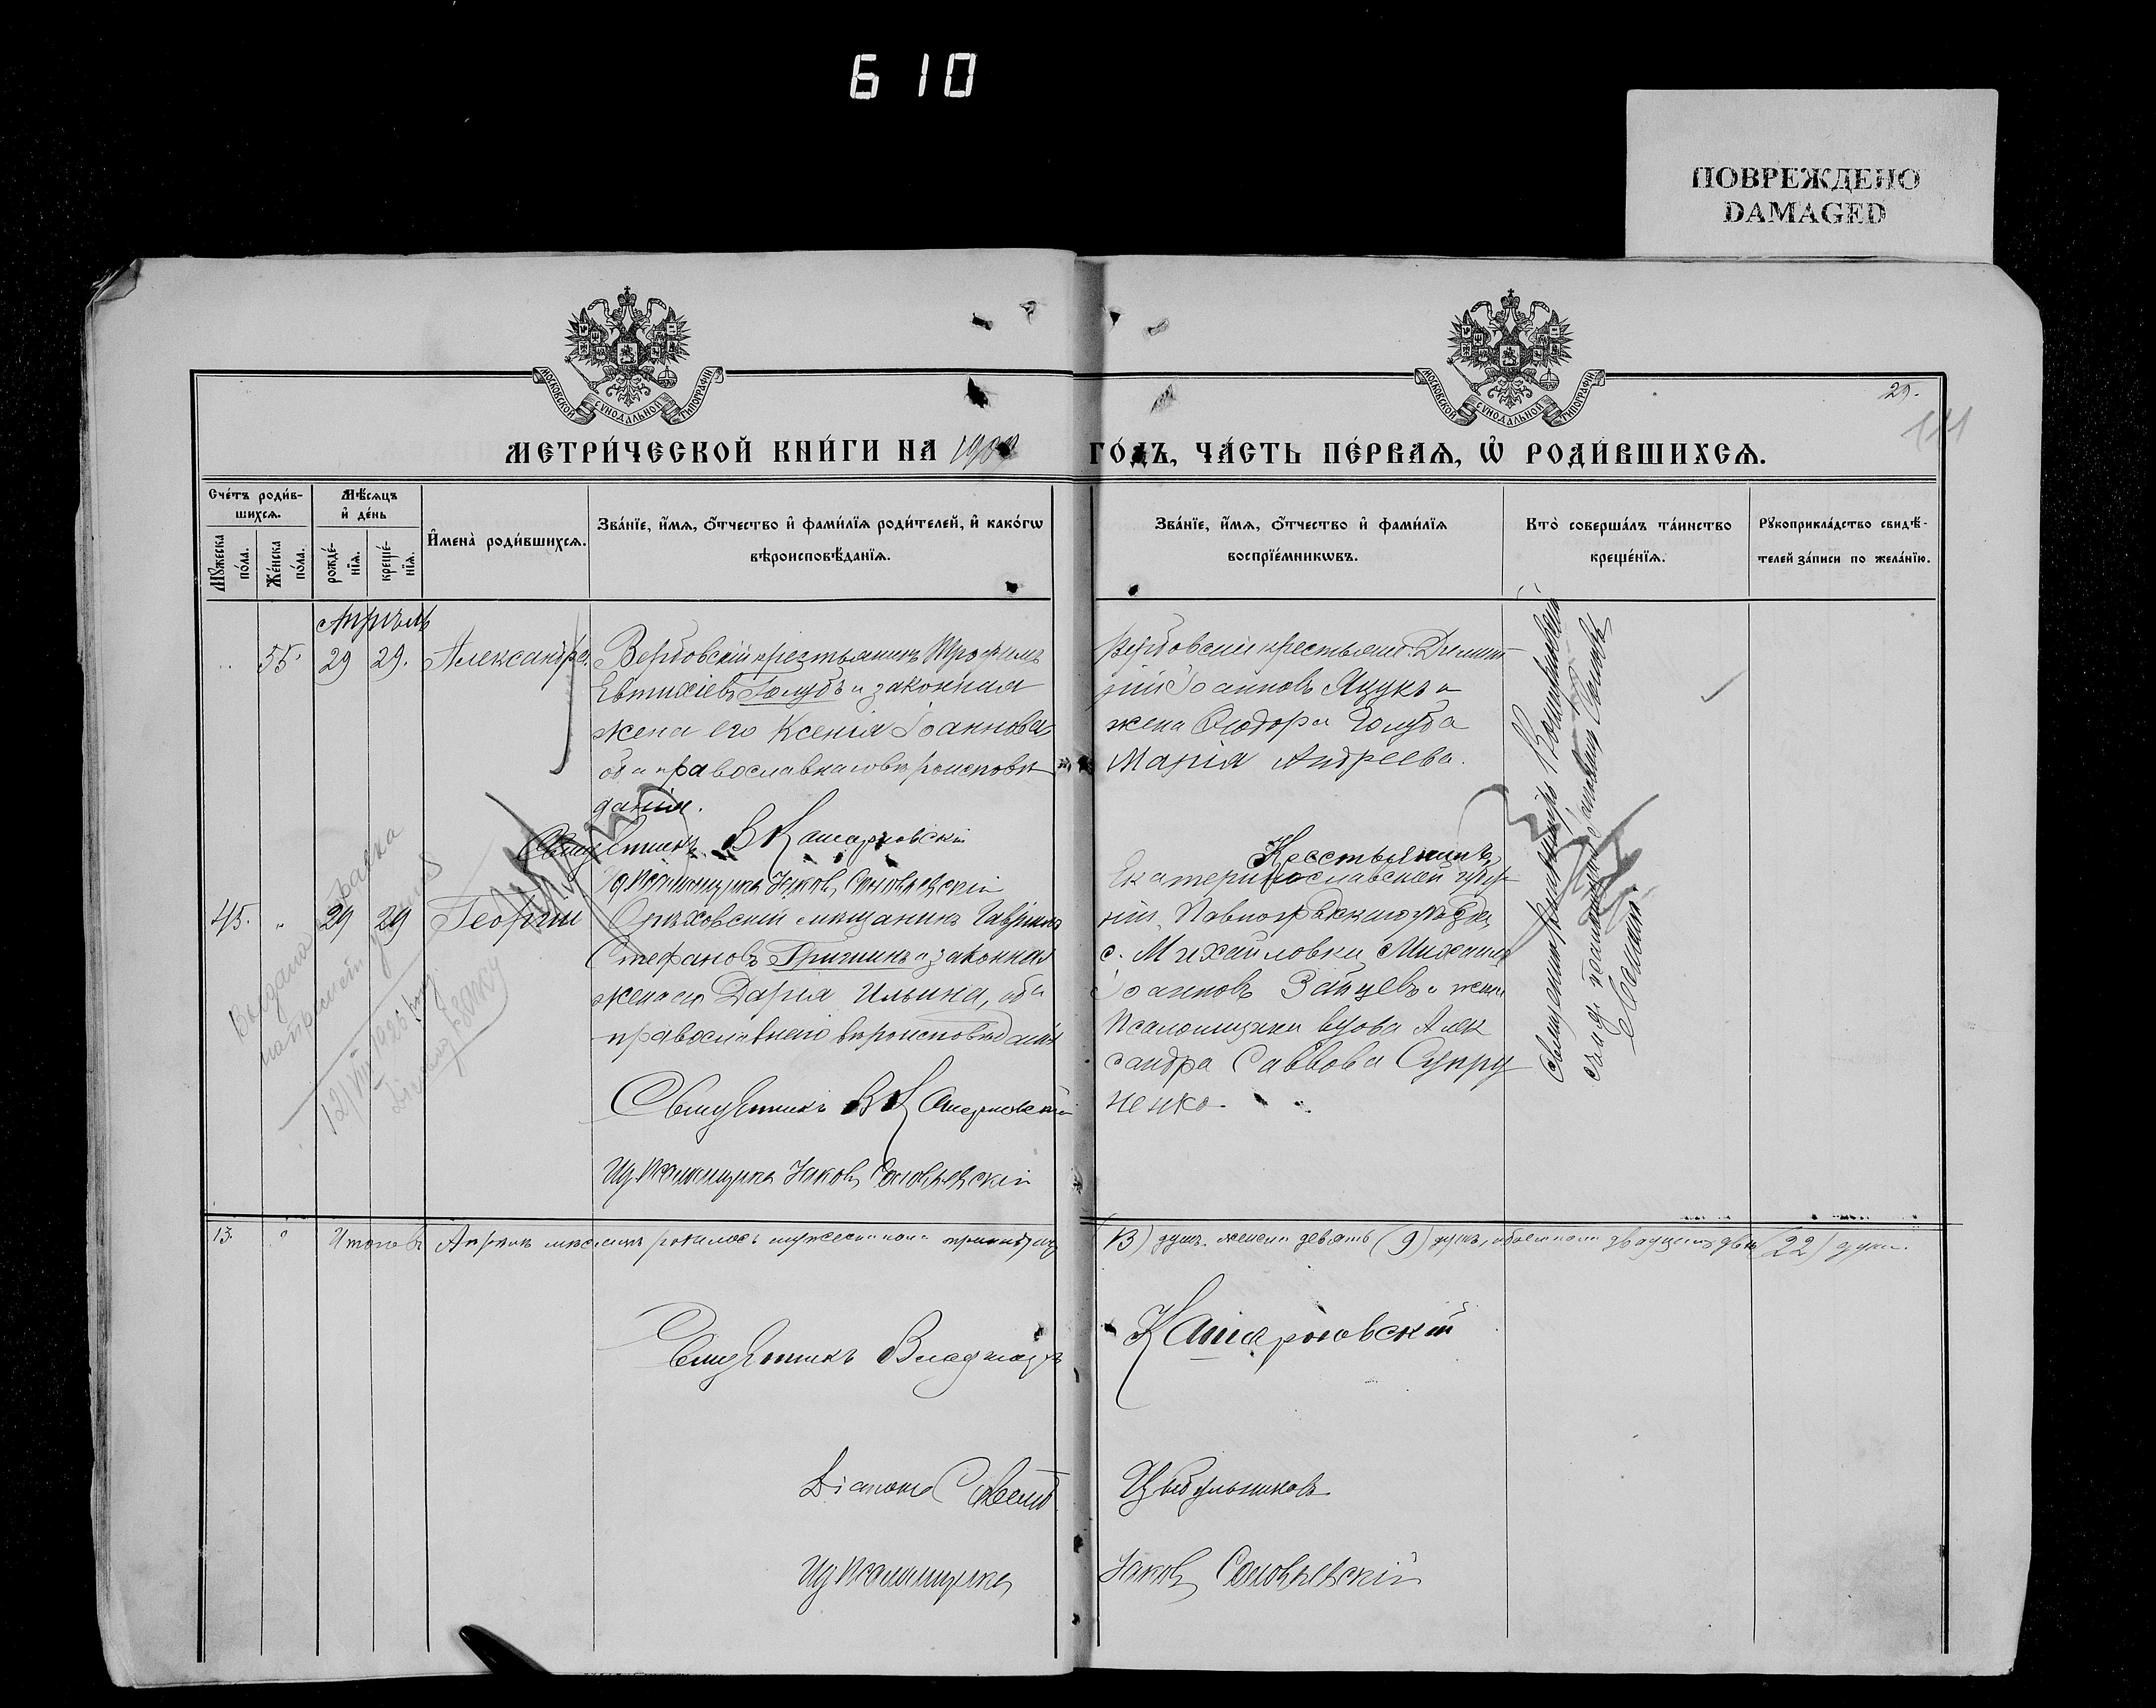 610
ПОВРЕЖДЕНО
DAMAGED
МОСКОВСКОЙ СѴНОДАЛЬНОЙ ТИПОГРАФІИ
МОСКОВСКОЙ СѴНОДАЛЬНОЙ ТИПОГРАФІИ
29.
МЕТРИ́ЧЕСКОЙ КНИ́ГИ НА 190
ГО́ДЪ, ЧА́СТЬ ПЕ́РВАѦ, Ѡ҆ РОДИ́ВШИХСѦ.
Сче́тъ роди́в-
шихсѧ.
Мꙋ́жеска
по́ла.
Же́нска
по́ла.
Мѣ́сѧцъ
и҆ де́нь
рожде́-
нїѧ.
креще́-
нїѧ.
И҆мена̀ роди́вшихсѧ.
Зва́нїе, и҆́мѧ, ѻ҆́тчество и҆ фами́лїѧ роди́телей, и҆ како́гѡ
вѣроисповѣ́данїѧ.
Зва́нїе, и҆́мѧ, ѻ҆́тчество и҆ фами́лїѧ
воспрїе́мникѡвъ.
Кто̀ соверша́лъ та́инство
креще́нїѧ.
Рꙋкоприкла́дство свидѣ́-
телей за́писи по жела́нїю.
Апрѣль
55. 29 29. Александра.
Вербовскій крестьянинъ Трофимъ
Евтихіевъ Голубъ и законная
жена его Ксенія Іоаннова
оба православнаго вѣроисповѣ
данія.
Священникъ В Кашаровскій
Псаломщика Яковъ Соловьевскій
Вербовскій крестьянинъ Димит
рій Іоанновъ Яцукъ и
жена Ѳеодора Голуба
Марія Андреева.
45. " 29 29 Георгій
Орѣховскій мѣщанинъ Гавріилъ
Стефановъ Гришинъ и законная
жена его Дарія Ильина, оба
православнаго вѣроисповѣданія
Священникъ В Кашаровскій
Псаломщика Яковъ Соловьевскій
Крестьянинъ
Екатеринославской губер
ніи, Павлоградскаго уѣзда,
с. Михайловки Михаилъ
Іоанновъ Зайцевъ и жена
Псаломщика вдова Алек
сандра Саввова Супру
ненко.
Священникъ Владиміръ
Выдана
12/VIII 1926
13. Итого въ Апрѣлѣ мѣсяцѣ родилось мужеска пола тринадцать
(13) душъ женска девять (9) душъ, обоего пола двадцать двѣ (22) души.
Священникъ Владиміръ
Кашаровскій
Діаконъ
Цыбульниковъ
Псаломщика
Яковъ Соловьевскій